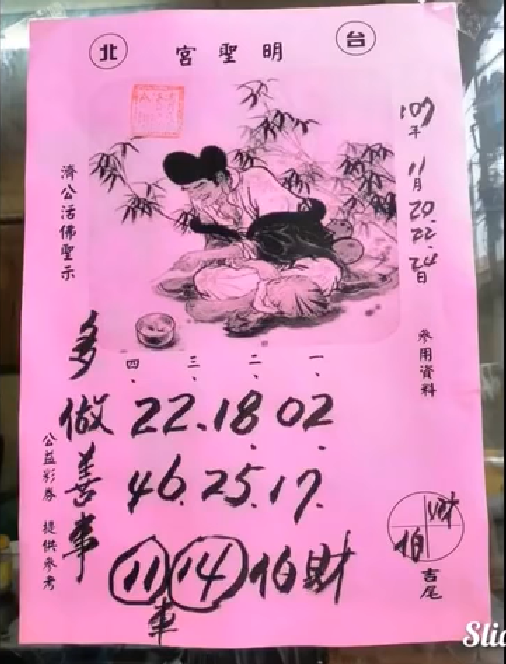 台北
明聖宮
107年 11月 20.22.24日
參用資料
濟公活佛聖示
一、 二、 三、 四、
02 18. 22.
17. 25. 46.
多做善事
公益彩券 提供參考
⑪ ⑭ 伯財
車
財
伯
吉尾
Slid